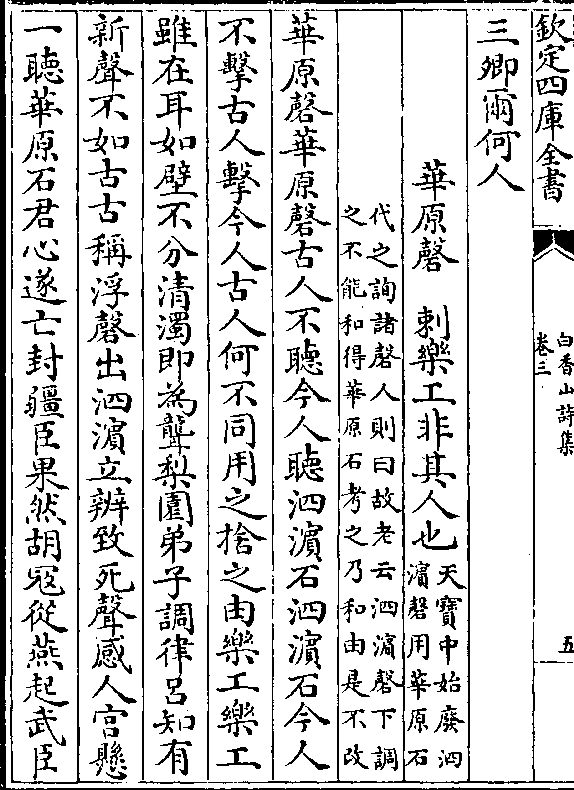 欽定四庫全書
白香山詩集
卷三
五
三卿爾何人
華原磬　刺樂工非其人也
天寶中始廢泗
濱磬用華原石
代之詢諸磬人則曰故老云泗濱磬下調
之不能和得華原石考之乃和由是不改
華原磬華原磬古人不聽今人聽泗濱石泗濱石今人
不擊古人擊今人古人何不同用之捨之由樂工樂工
雖在耳如壁不分清濁即為聾梨園弟子調律呂知有
新聲不如古古稱浮磬出泗濱立辨致死聲感人宮懸
一聽華原石君心遂亡封疆臣果然胡寇從燕起武臣